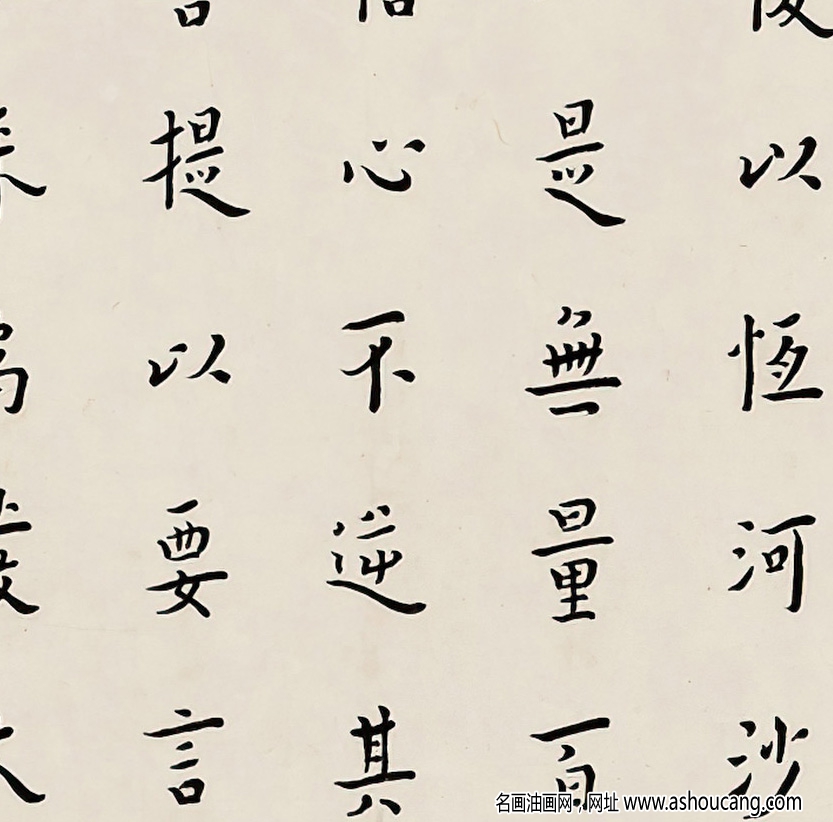 以恆河沙
是無量百
心不逆其
提以要言
名画油画网，网址 www.ashoucang.com